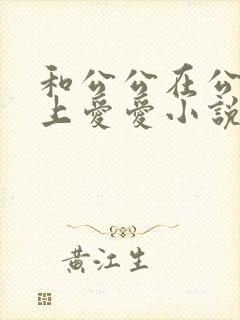 和公公在公
上爱爱小説
黄江生